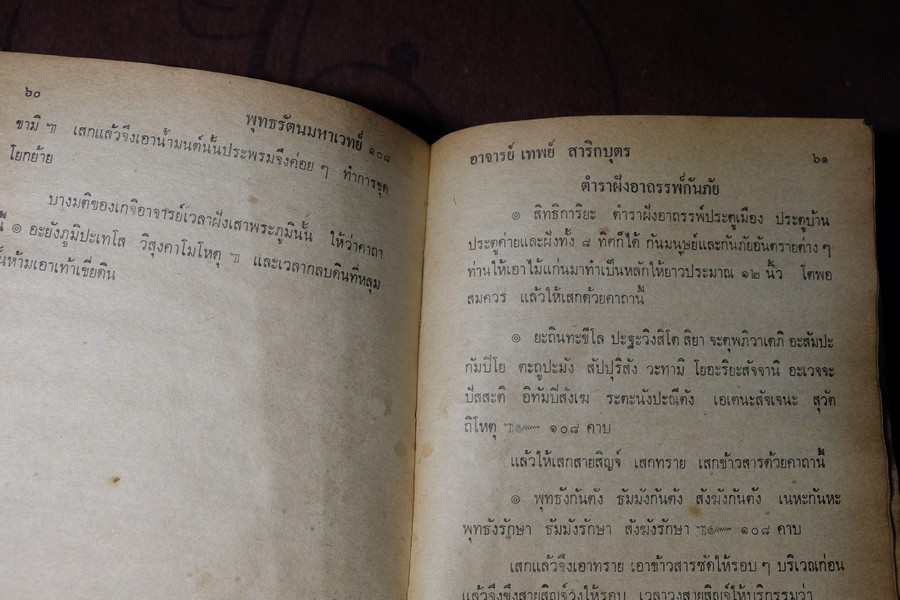 ๖๐
พุทธรัตนมหาเวทย์ ๑๐๘
ขามิ ฯ เสกแล้วจึงเอาน้ำมนต์นั้นประพรมจึงค่อย ๆ ทำการขุด
โยกย้าย
บางมติของเกจิอาจารย์เวลาฝังเสาพระภูมินั้น ให้ว่าคาถา
นี้ ๑ อะยังภูมิปะเทโส วิสุงคาโมโหตุ ฯ และเวลากลบดินที่หลุม
นั้นห้ามเอาเท้าเขี่ยดิน
อาจารย์ เทพย์ สาริกบุตร
๖๑
ตำราฝังอาถรรพ์กันภัย
๏ สิทธิการิยะ ตำราฝังอาถรรพ์ประตูเมือง ประตูบ้าน
ประตูค่ายและฝังทั้ง ๘ ทิศก็ได้ กันมนุษย์และกันภัยอันตรายต่าง ๆ
ท่านให้เอาไม้แก่นมาทำเป็นหลักให้ยาวประมาณ ๑๒ นิ้ว โตพอ
สมควร แล้วให้เสกด้วยคาถานี้
๏ ยะถินทะขีโล ปะฐะวิงสิโต สิยา จะตุพภิวาเตภิ อะสัมปะ
กัมปิโย ตะถูปะมัง สัปปุริสัง วะทามิ โยอะริยะสัจจานิ อะเวจจะ
ปัสสะติ อิทัมปิสังเฆ ระตะนังปะณีตัง เอเตนะสัจเจนะ สุวัต
ถิโหตุ ฯ๛ ๑๐๘ คาบ
แล้วให้เสกสายสิญจ์ เสกทราย เสกข้าวสารด้วยคาถานี้
๏ พุทธังกันตัง ธัมมังกันตัง สังฆังกันตัง เนหะกันหะ
พุทธังรักษา ธัมมังรักษา สังฆังรักษา ฯ๛ ๑๐๘ คาบ
เสกแล้วจึงเอาทราย เอาข้าวสารซัดให้รอบ ๆ บริเวณก่อน
แล้วจึงขึงสายสิญจ์วงให้รอบ เวลาวงสายสิญจ์ให้บริกรรมว่า